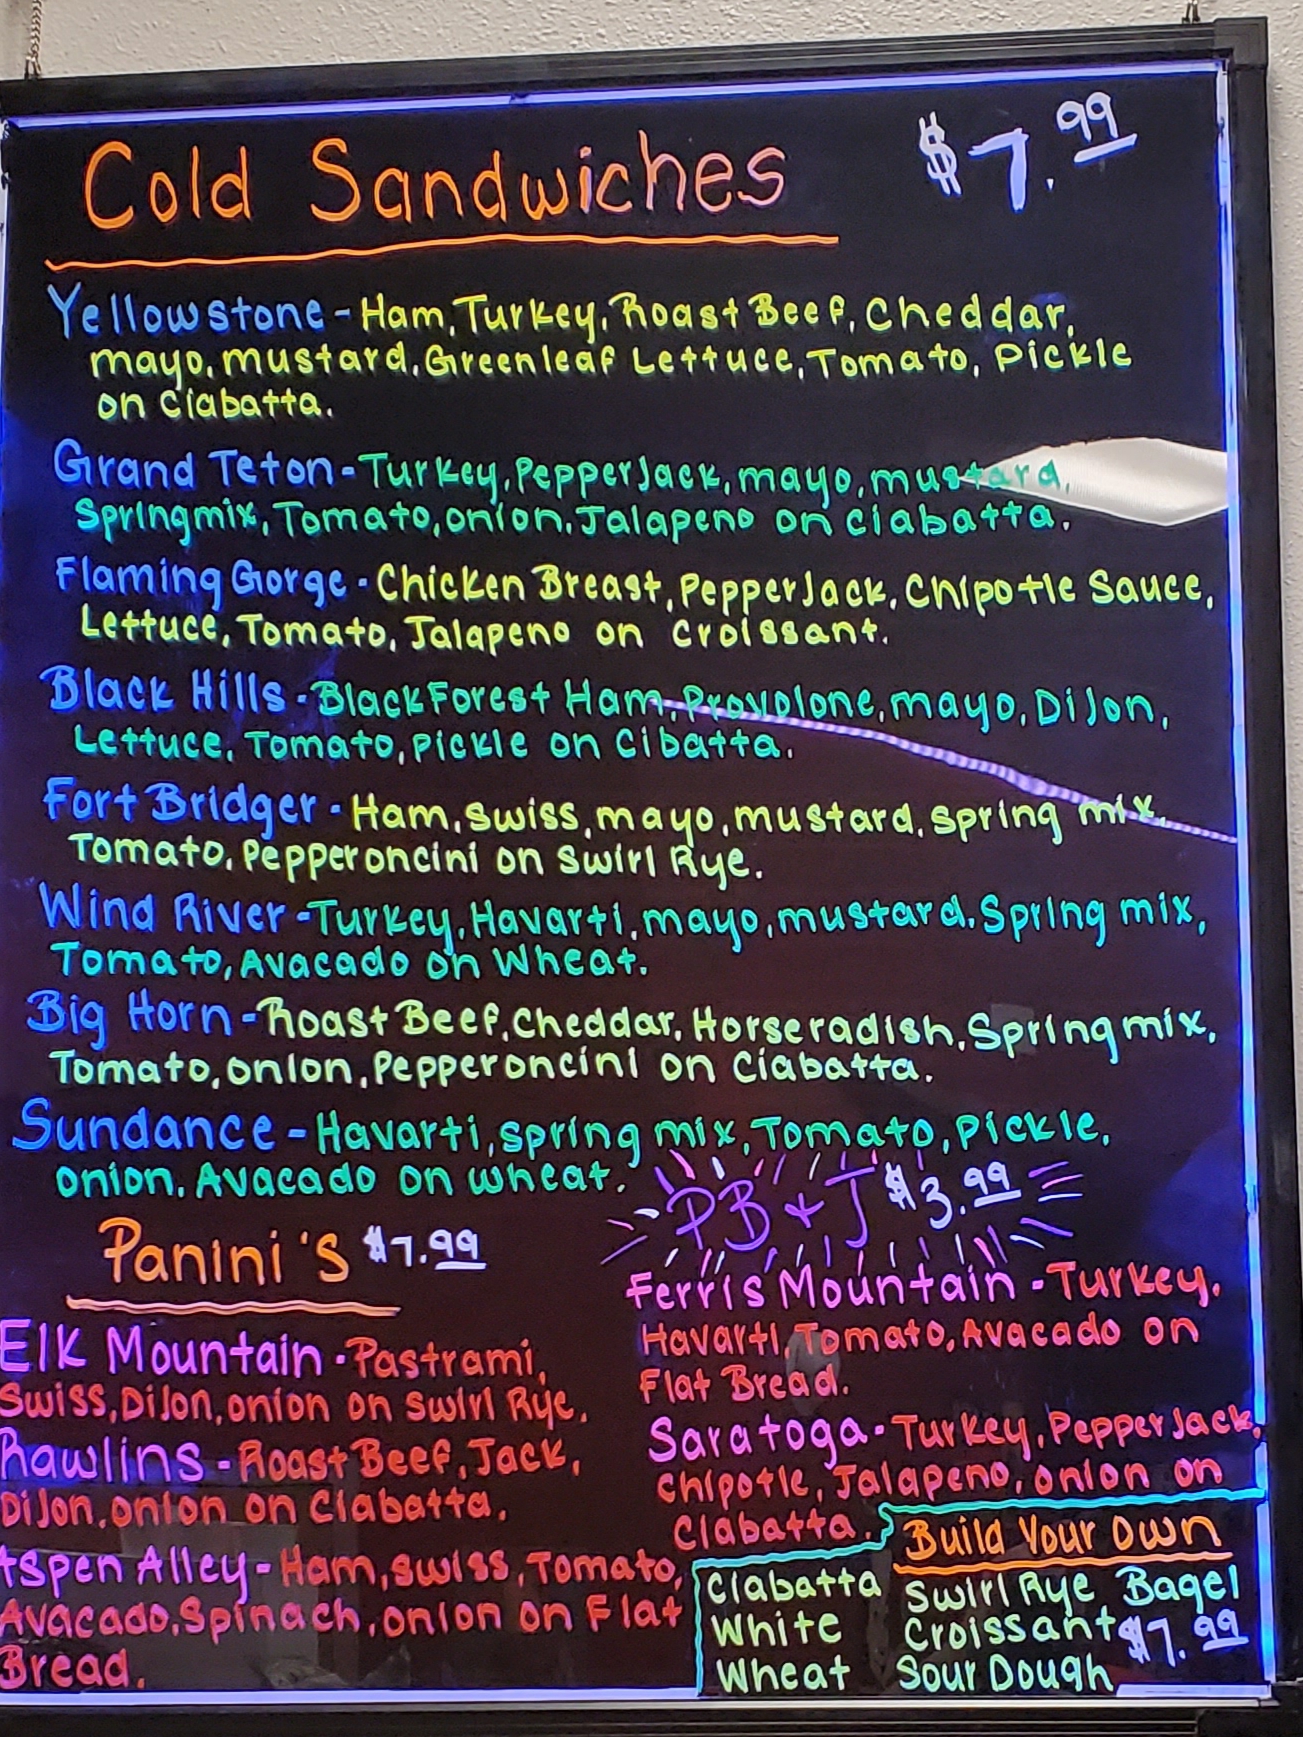 Cold Sandwiches $7.99
Yellowstone - Ham, Turkey, Roast Beef, Cheddar,
mayo, mustard, Greenleaf Lettuce, Tomato, Pickle
on Ciabatta.
Grand Teton - Turkey, Pepper Jack, mayo, mustard,
Spring mix, Tomato, onion, Jalapeno on ciabatta.
Flaming Gorge - Chicken Breast, Pepper Jack, Chipotle Sauce,
Lettuce, Tomato, Jalapeno on Croissant.
Black Hills - Black Forest Ham, Provolone, mayo, Dijon,
Lettuce, Tomato, Pickle on Cibatta.
Fort Bridger - Ham, Swiss, mayo, mustard, spring mix,
Tomato, Pepperoncini on Swirl Rye.
Wind River - Turkey, Havarti, mayo, mustard, Spring mix,
Tomato, Avacado on Wheat.
Big Horn - Roast Beef, Cheddar, Horseradish, Spring mix,
Tomato, onion, Pepperoncini on Ciabatta.
Sundance - Havarti, spring mix, Tomato, Pickle,
onion, Avacado on wheat.
PB + J $3.99
Panini's $7.99
Elk Mountain - Pastrami,
Swiss, Dijon, onion on Swirl Rye.
Rawlins - Roast Beef, Jack,
Dijon, onion on Ciabatta.
Aspen Alley - Ham, swiss, Tomato,
Avacado, Spinach, onion on Flat
Bread.
Ferris Mountain - Turkey,
Havarti, Tomato, Avacado on
Flat Bread.
Saratoga - Turkey, Pepper Jack,
Chipotle, Jalapeno, onion on
Ciabatta.
Build Your Own
Ciabatta Swirl Rye Bagel
White Croissant $7.99
Wheat Sour Dough